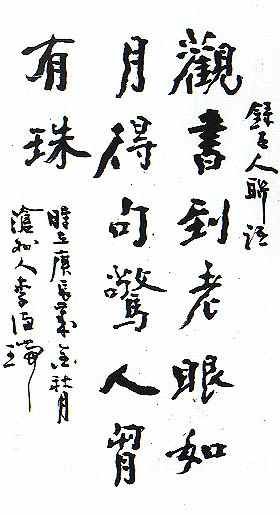 錄古人聯語
觀書到老眼如
月得句驚人胷
有珠
時在庚辰歲金秋月
滄州人李